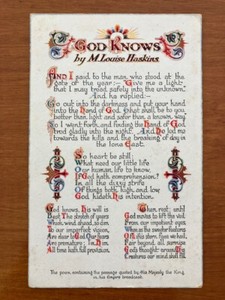 GOD KNOWS
by M. Louise Haskins.
AND I said to the man who stood at the
gate of the year:— "Give me a light
that I may tread safely into the unknown."
And he replied:—
Go out into the darkness and put your hand
into the Hand of God. That shall be to you
better than light and safer than a known way.
So I went forth, and finding the Hand of God,
trod gladly into the night. And He led me
towards the hills and the breaking of day in
the lone East.
So heart be still:
What need our little life
Our human life to know,
If God hath comprehension?
In all the dizzy strife
Of things both high and low
God hideth His intention.
God knows. His will
Is best. The stretch of years
Which wind ahead, so dim
To our imperfect vision,
Are clear to God. Our fears
Are premature; In Him
All time hath full provision.
Then rest: until
God moves to lift the veil
From our impatient eyes,
When, as the sweeter features
Of Life's stern face we hail,
Fair beyond all surmise
God's thought around His
Creatures our mind shall fill.
The poem, containing the passage quoted by His Majesty the King
in his Empire broadcast.